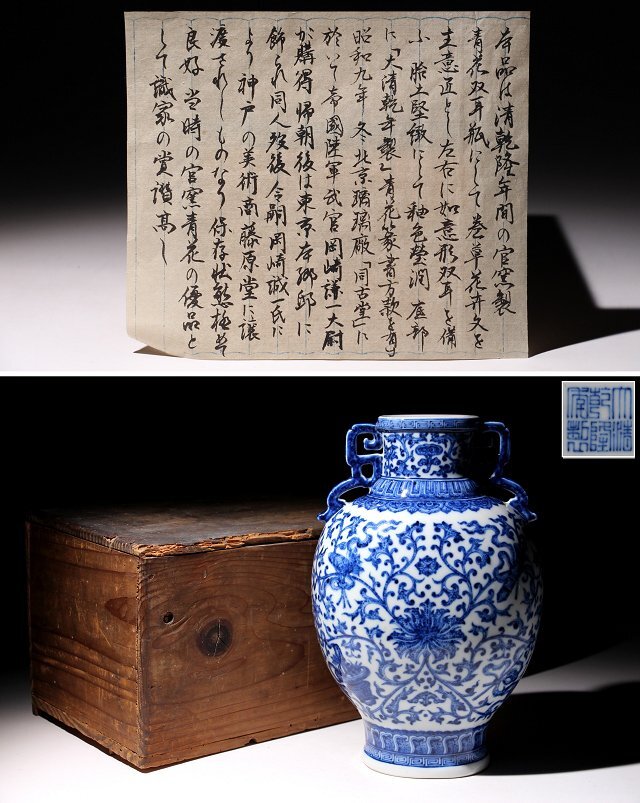 本品は清乾隆年間の官窯製
青花双耳瓶にして巻草花卉文を
主意匠とし左右に如意形双耳を備
ふ 胎土堅緻にして釉色瑩潤 底部
に「大清乾隆年製」青花篆書方款を有す
昭和九年冬北京琉璃廠「同古堂」に
於いて帝國陸軍武官岡崎謙一大尉
が購得 帰朝後は東京本郷邸に
飾られ同人歿後 令嗣岡崎誠一氏に
より神戸の美術商藤原堂に譲
渡されしものなり 保存状態極めて
良好 当時の官窯青花の優品と
して識家の賞讃高し
大清
乾隆
年製